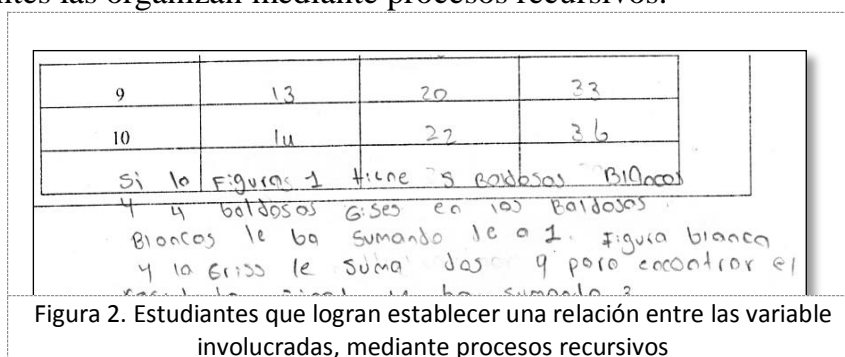 ntes las organizan mediante procesos recursivos.
9 13 20 33
10 14 22 36
Si la Figuras 1 tiene 5 Baldosas Blancas
Y 4 baldosas Gises en las Baldosas
Blancas le ba sumando de a 1. Figura blanca
y la Griss le suma dos y para encontrar el
ba sumando 3
Figura 2. Estudiantes que logran establecer una relación entre las variable
involucradas, mediante procesos recursivos